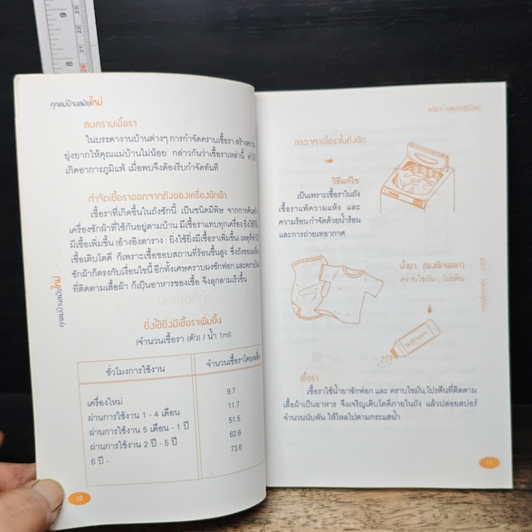 คุณแม่บ้านสมัยใหม่
ลบคราบเชื้อรา
ในบรรดางานบ้านต่างๆ การกำจัดคราบเชื้อรา สร้างความ
ยุ่งยากให้คุณแม่บ้านไม่น้อย กล่าวกันว่าเชื้อราเหล่านี้ ทำให้
เกิดอาการภูมิแพ้ เมื่อพบจึงต้องรีบกำจัดทันที
กำจัดเชื้อราออกจากถังของเครื่องซักผ้า
เชื้อราที่เกิดขึ้นในถังซักนี้ เป็นชนิดมีพิษ จากการค้นคว้า
เครื่องซักผ้าที่ใช้กันอยู่ตามบ้าน มีเชื้อราแทบทุกเครื่อง ยิ่งใช้ยิ่ง
มีเชื้อเพิ่มขึ้น (อ้างอิงตาราง : ยิ่งใช้ยิ่งมีเชื้อราเพิ่มขึ้น)
เชื้อเติบโตดี ก็เพราะเชื้อชอบสถานที่ร้อนชื้นสูง ซึ่งถังของเครื่อง
ซักผ้าก็ตรงกับเงื่อนไขนี้ อีกทั้งเศษคราบผงซักฟอก และคราบไคล
ที่ติดตามเสื้อผ้า ก็เป็นอาหารของเชื้อ จึงลุกลามเร็วขึ้น
คุณแม่บ้านสมัยใหม่
ยิ่งใช้ยิ่งมีเชื้อราเพิ่มขึ้น
(จำนวนเชื้อรา (ตัว) / น้ำ 1ml)
ชั่วโมงการใช้งาน จำนวนเชื้อราโดยเฉลี่ย
เครื่องใหม่ 9.7
ผ่านการใช้งาน 1 - 4 เดือน 11.7
ผ่านการใช้งาน 5 เดือน - 1 ปี 51.5
ผ่านการใช้งาน 2 ปี - 5 ปี 62.6
6 ปี - 73.6
ตรวจหาเชื้อราในถังซัก
วิธีแก้ไข
เป็นเพราะเชื้อราในถัง
เชื้อราแพ้ความแห้ง และ
ความร้อน กำจัดด้วยน้ำร้อน
และการถ่ายเทอากาศ
น้ำยา (ผงซักฟอก)
คราบไขมัน, โปรตีน
เชื้อรา
เชื้อราโดยใช้น้ำยาซักฟอก และ คราบไขมัน โปรตีนที่ติดตาม
เสื้อผ้าเป็นอาหาร จึงเจริญเติบโตดีภายในถัง แล้วปล่อยสปอร์
จำนวนนับพัน ให้ไหลไปตามกระแสน้ำ